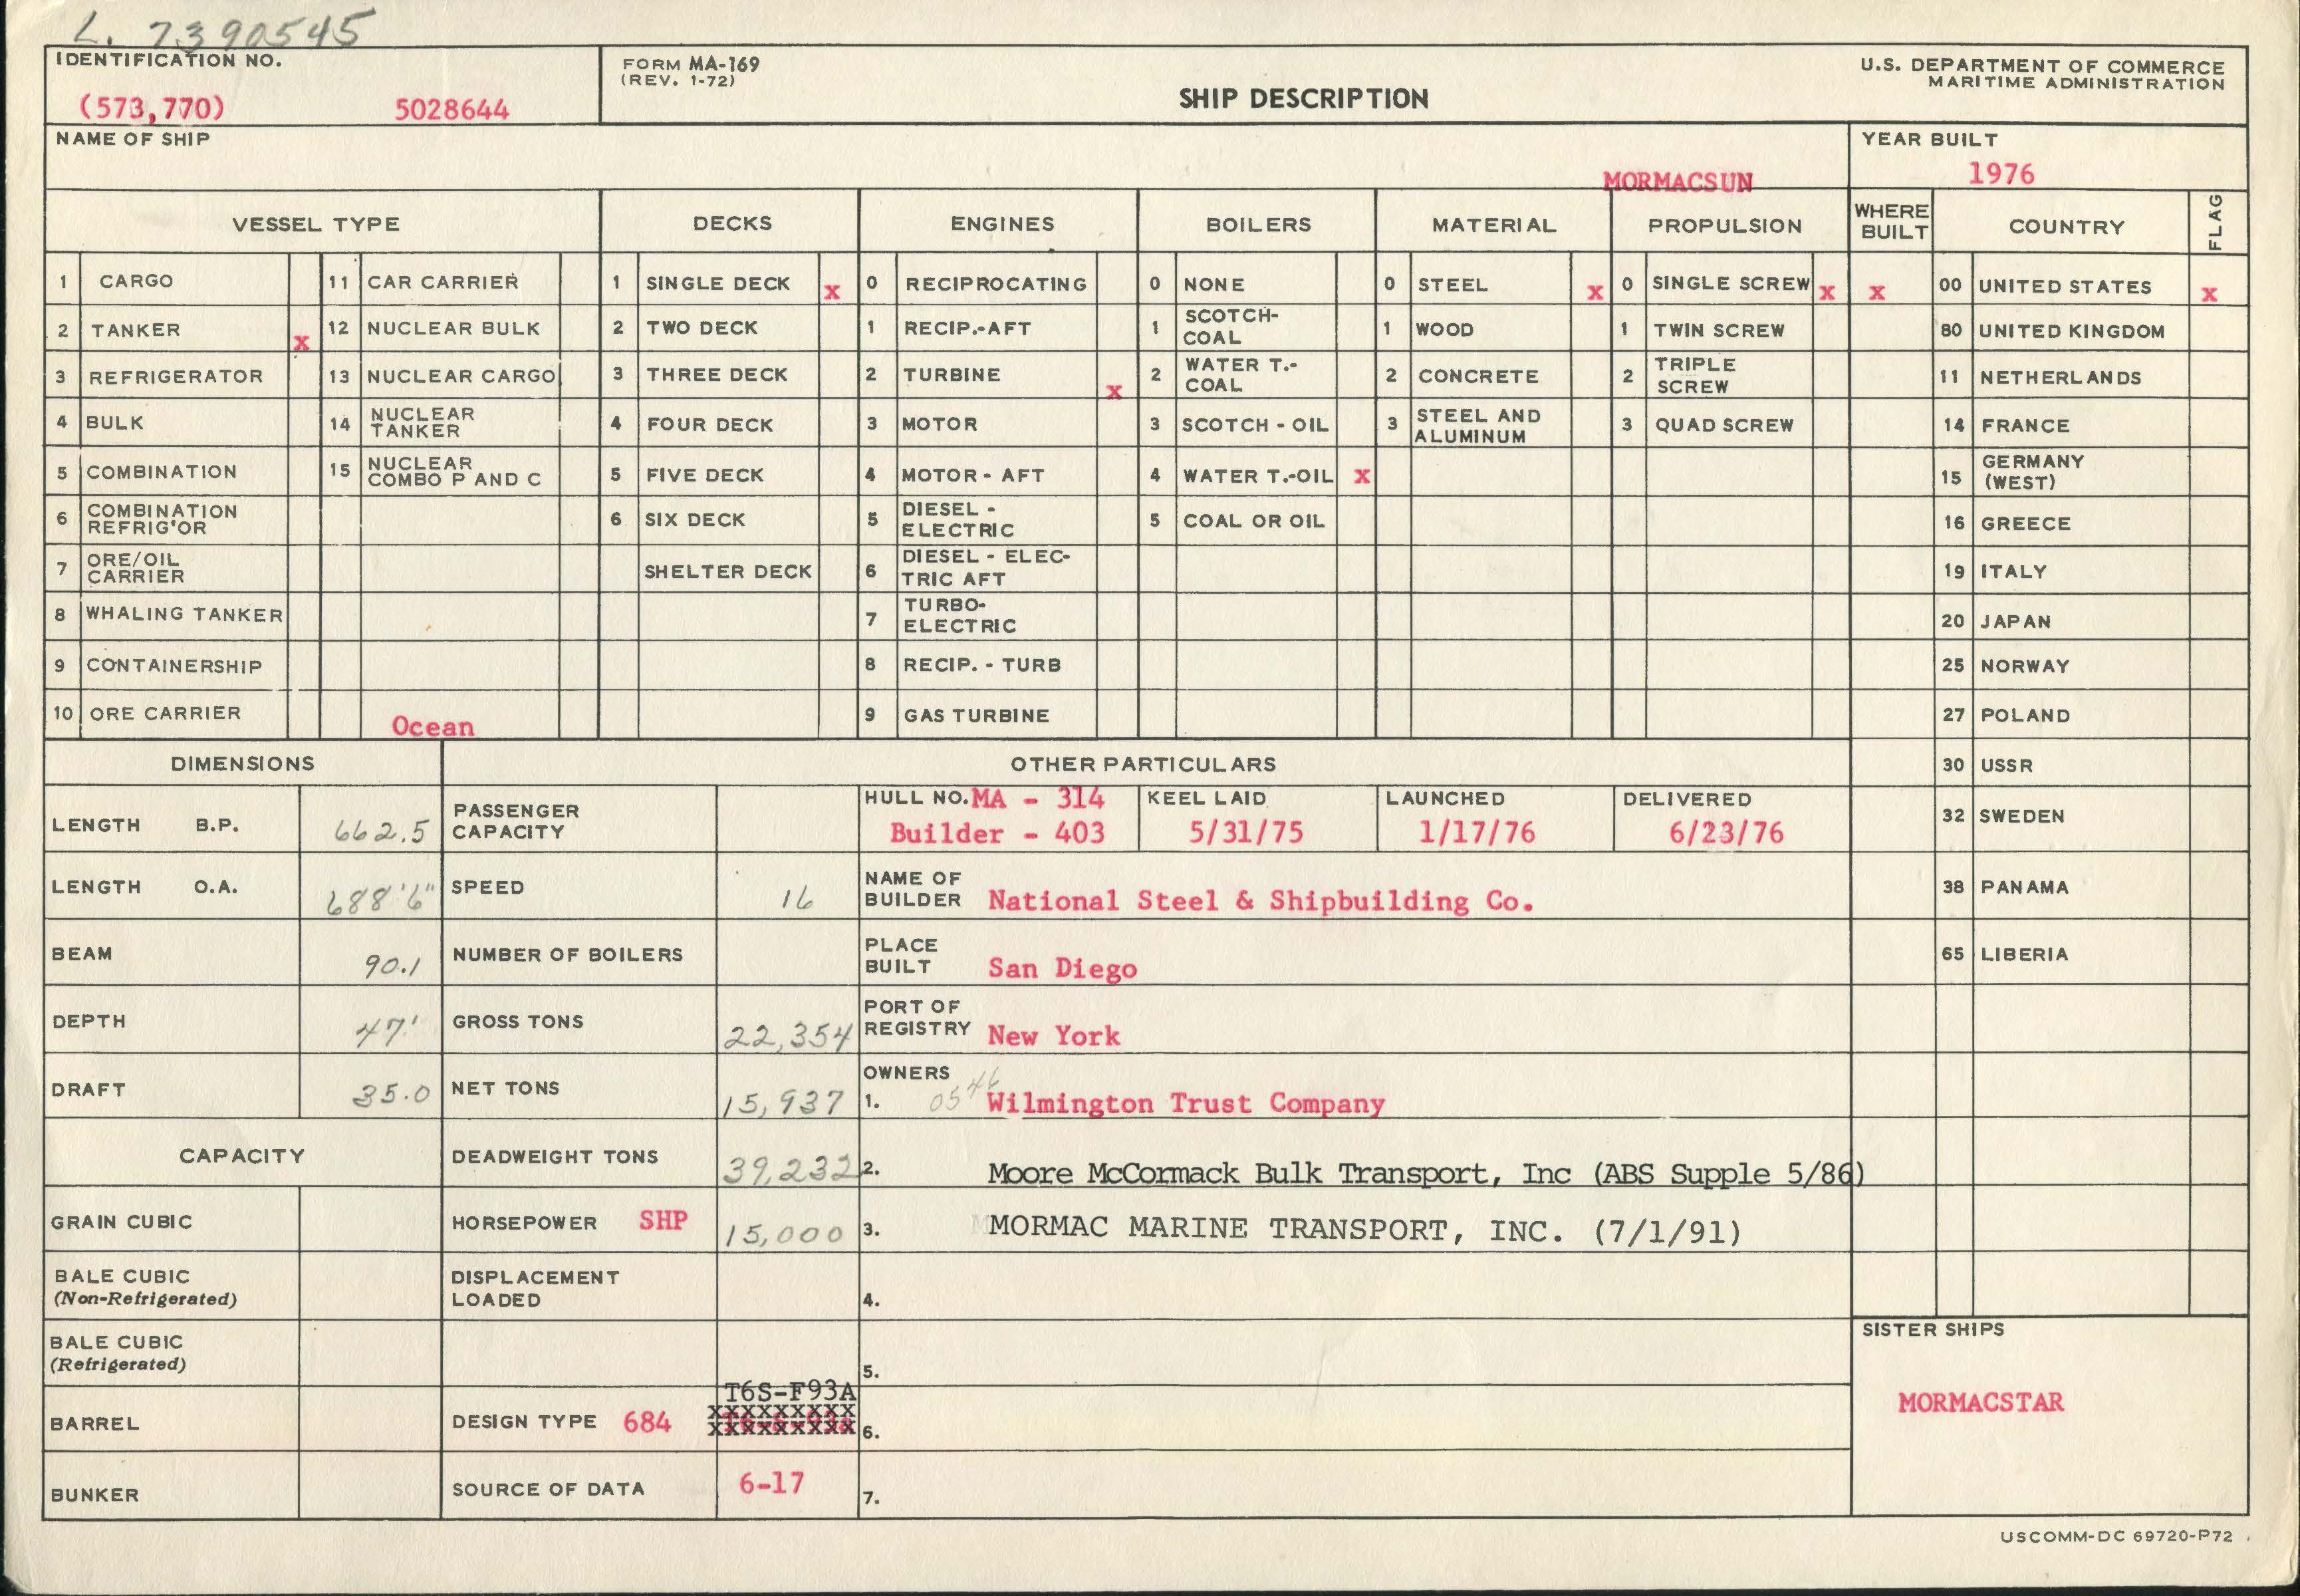 L. 7390545
IDENTIFICATION NO.
(573,770) 5028644
FORM MA-169
(REV. 1-72)
SHIP DESCRIPTION
U.S. DEPARTMENT OF COMMERCE
MARITIME ADMINISTRATION
NAME OF SHIP
MORMACSUN
YEAR BUILT
1976
VESSEL TYPE DECKS ENGINES BOILERS MATERIAL PROPULSION WHERE BUILT COUNTRY FLAG
1 CARGO 11 CAR CARRIER 1 SINGLE DECK x 0 RECIPROCATING 0 NONE 0 STEEL x 0 SINGLE SCREW x x 00 UNITED STATES x
2 TANKER x 12 NUCLEAR BULK 2 TWO DECK 1 RECIP.-AFT 1 SCOTCH-COAL 1 WOOD 1 TWIN SCREW 80 UNITED KINGDOM
3 REFRIGERATOR 13 NUCLEAR CARGO 3 THREE DECK 2 TURBINE x 2 WATER T.-COAL 2 CONCRETE 2 TRIPLE SCREW 11 NETHERLANDS
4 BULK 14 NUCLEAR TANKER 4 FOUR DECK 3 MOTOR 3 SCOTCH - OIL 3 STEEL AND ALUMINUM 3 QUAD SCREW 14 FRANCE
5 COMBINATION 15 NUCLEAR COMBO P AND C 5 FIVE DECK 4 MOTOR - AFT 4 WATER T.-OIL x 15 GERMANY (WEST)
6 COMBINATION REFRIG'OR 6 SIX DECK 5 DIESEL - ELECTRIC 5 COAL OR OIL 16 GREECE
7 ORE/OIL CARRIER SHELTER DECK 6 DIESEL - ELEC-TRIC AFT 19 ITALY
8 WHALING TANKER 7 TURBO-ELECTRIC 20 JAPAN
9 CONTAINERSHIP 8 RECIP. - TURB 25 NORWAY
10 ORE CARRIER Ocean 9 GAS TURBINE 27 POLAND
DIMENSIONS OTHER PARTICULARS 30 USSR
LENGTH B.P. 662.5 PASSENGER CAPACITY HULL NO. MA - 314 Builder - 403 KEEL LAID 5/31/75 LAUNCHED 1/17/76 DELIVERED 6/23/76 32 SWEDEN
LENGTH O.A. 688'6" SPEED 16 NAME OF BUILDER National Steel & Shipbuilding Co. 38 PANAMA
BEAM 90.1 NUMBER OF BOILERS PLACE BUILT San Diego 65 LIBERIA
DEPTH 47' GROSS TONS 22,354 PORT OF REGISTRY New York
DRAFT 35.0 NET TONS 15,937 OWNERS 1. 0546 Wilmington Trust Company
CAPACITY DEADWEIGHT TONS 39,232 2. Moore McCormack Bulk Transport, Inc (ABS Supple 5/86)
GRAIN CUBIC HORSEPOWER SHP 15,000 3. MORMAC MARINE TRANSPORT, INC. (7/1/91)
BALE CUBIC (Non-Refrigerated) DISPLACEMENT LOADED 4.
BALE CUBIC (Refrigerated) 5.
SISTER SHIPS
MORMACSTAR
T6S-F93A
BARREL DESIGN TYPE 684 XXXXXXXXX 6.
BUNKER SOURCE OF DATA 6-17 7.
USCOMM-DC 69720-P72